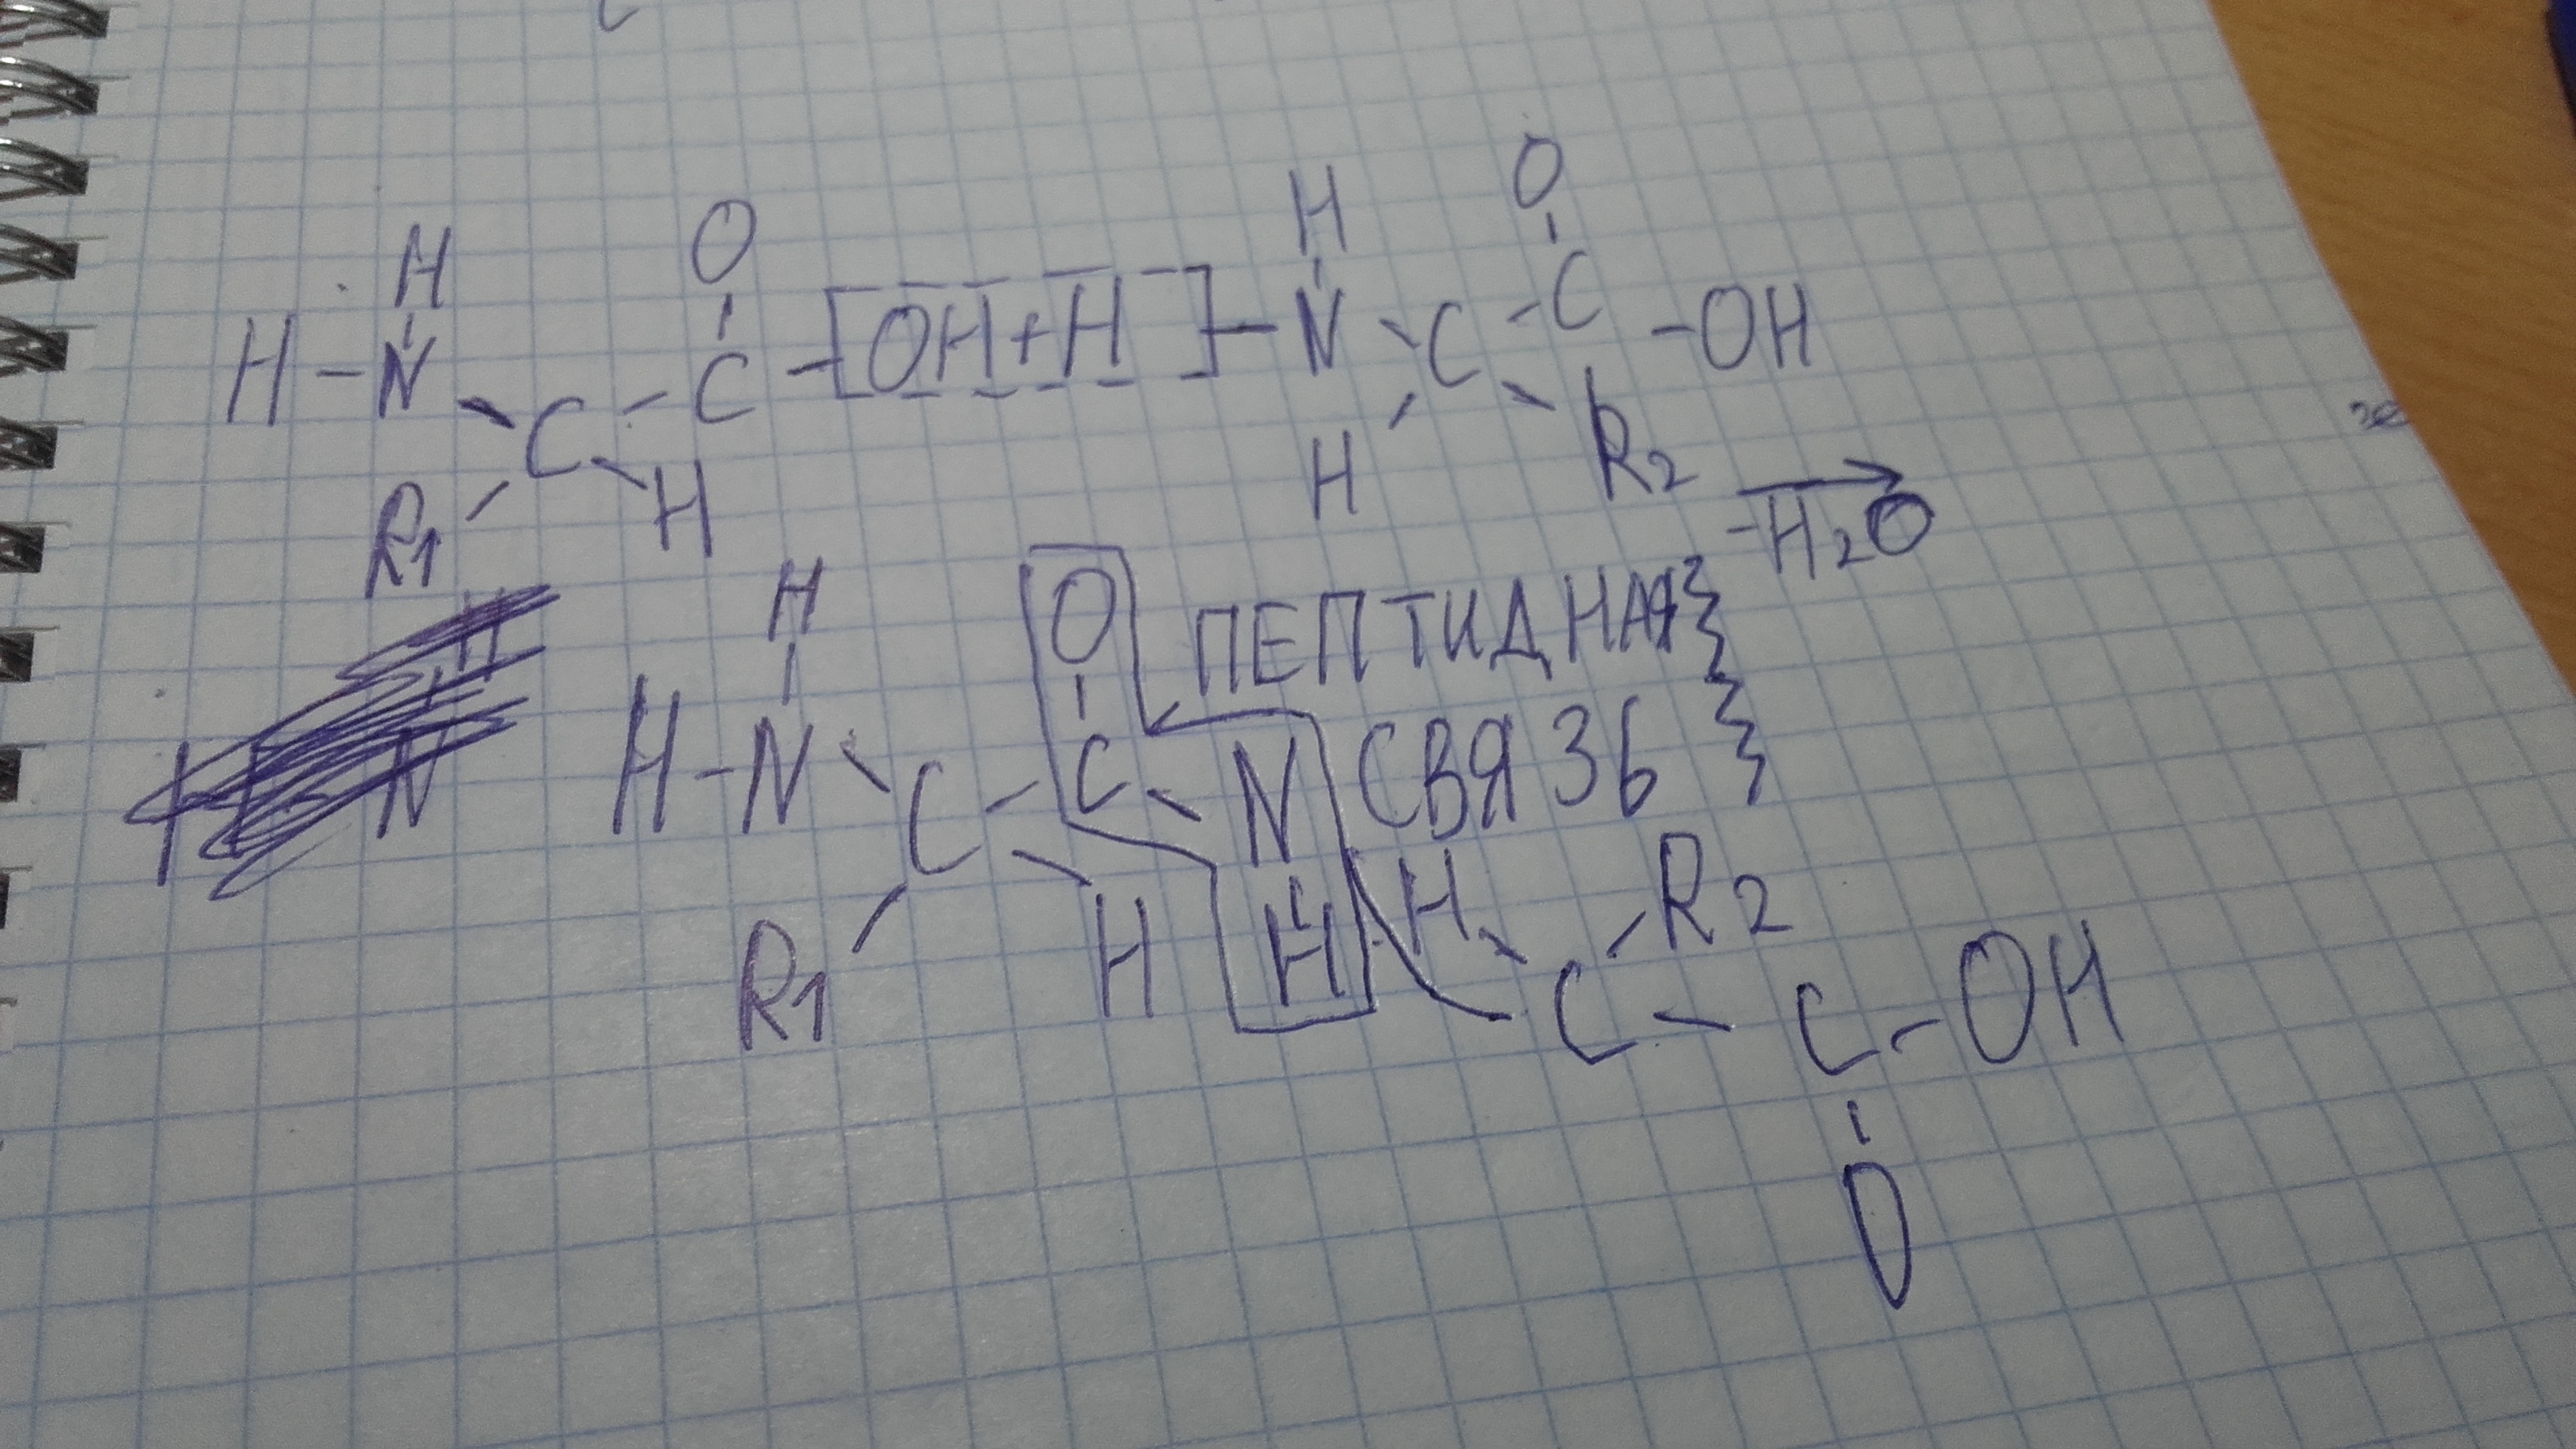 H O
H H O
H - N C - [OH + H] - N C - OH
C H C
R1 H H R2
→
-H2O
H O ПЕПТИДНАЯ
H - N C N СВЯЗЬ
C H H R2
R1 H C - C - OH
O